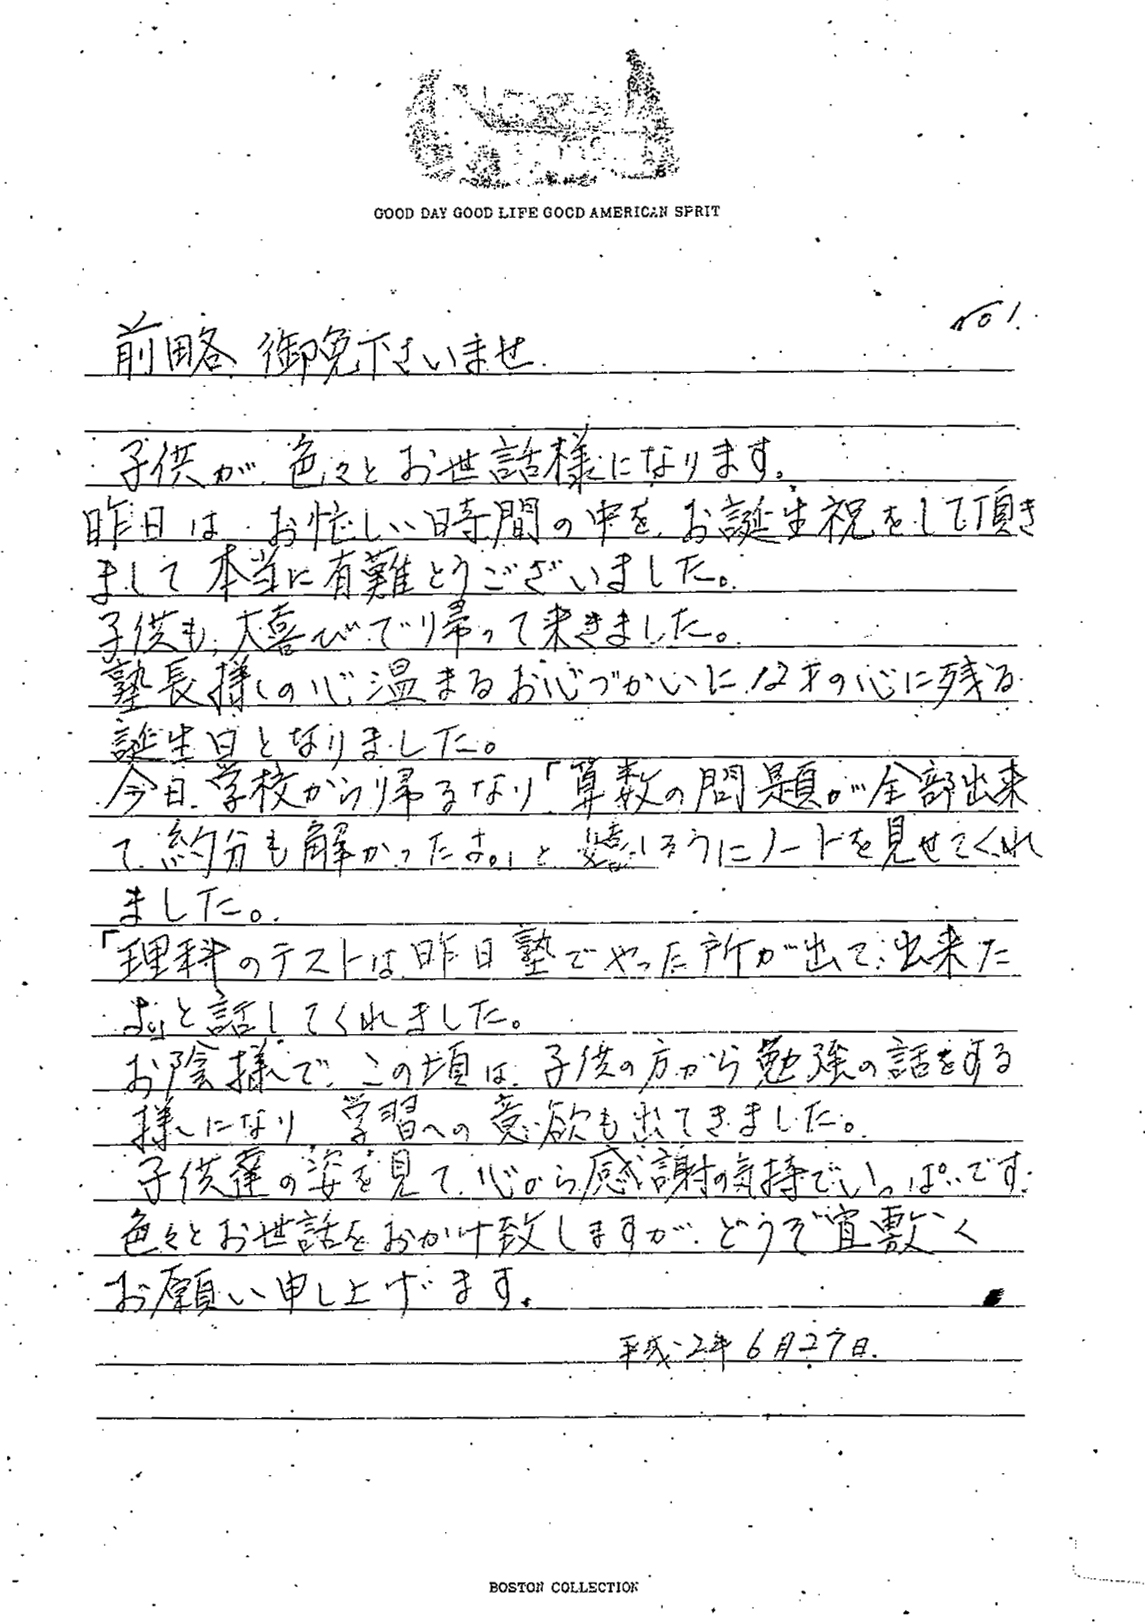 GOOD DAY GOOD LIFE GOOD AMERICAN SPRIT
No 1.
前略 御免下さいませ.
子供が、色々とお世話様になります。
昨日は、お忙しい時間の中を、お誕生祝をして頂き
まして 本当に有難とうございました。
子供も、大喜びで帰って来きました。
塾長様の心温まるお心づかいに、12才の心に残る
誕生日となりました。
今日、学校から帰るなり「算数の問題が全部出来
て、約分も解かったよ。」と 嬉しそうにノートを見せてくれ
ました。
「理科のテストは昨日塾でやった所が出て、出来た
よ」と話してくれました。
お陰様で、この頃は、子供の方から勉強の話をする
様になり 学習への意欲も出てきました。
子供達の姿を見て、心から感謝の気持でいっぱいです.
色々とお世話をおかけ致しますが、どうぞ宜敷く
お願い申し上げます。
平成2年6月27日.
BOSTON COLLECTION